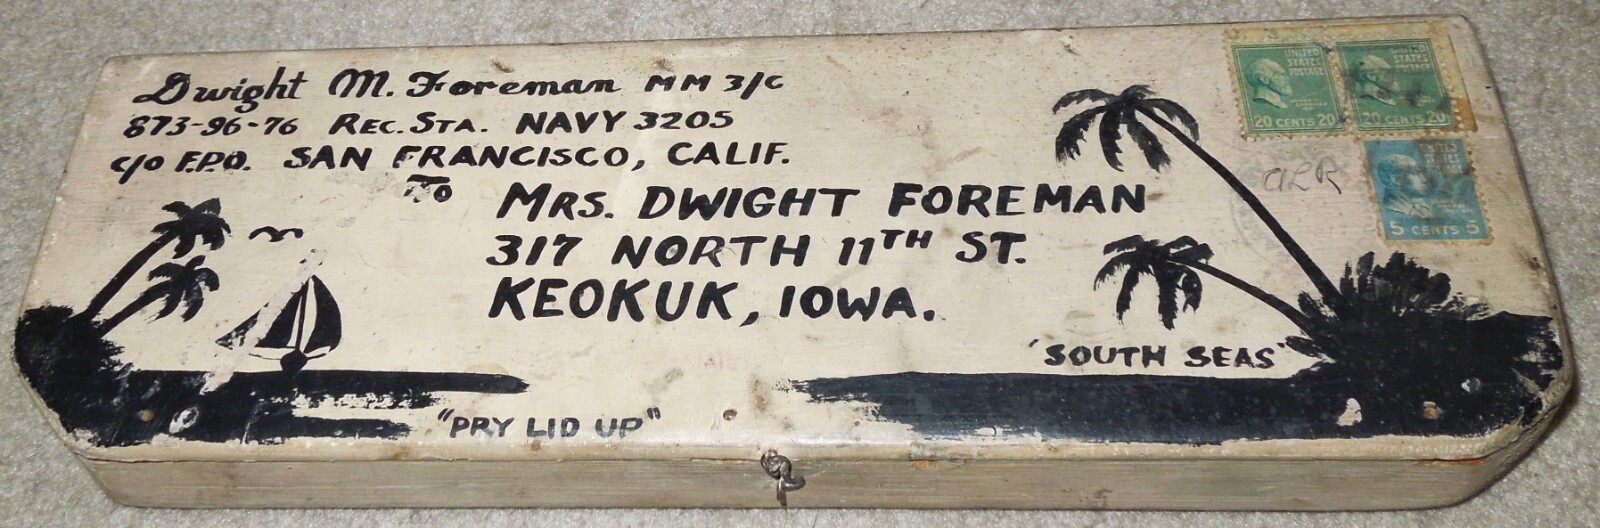 Dwight M. Foreman MM 3/C
873-96-76 REC. STA. NAVY 3205
c/o F.P.O. SAN FRANCISCO, CALIF.
To
MRS. DWIGHT FOREMAN
317 NORTH 11TH ST.
KEOKUK, IOWA.
"PRY LID UP"
'SOUTH SEAS'
UNITED STATES POSTAGE
20 CENTS 20
UNITED STATES POSTAGE
20 CENTS 20
UNITED STATES
5 CENTS 5